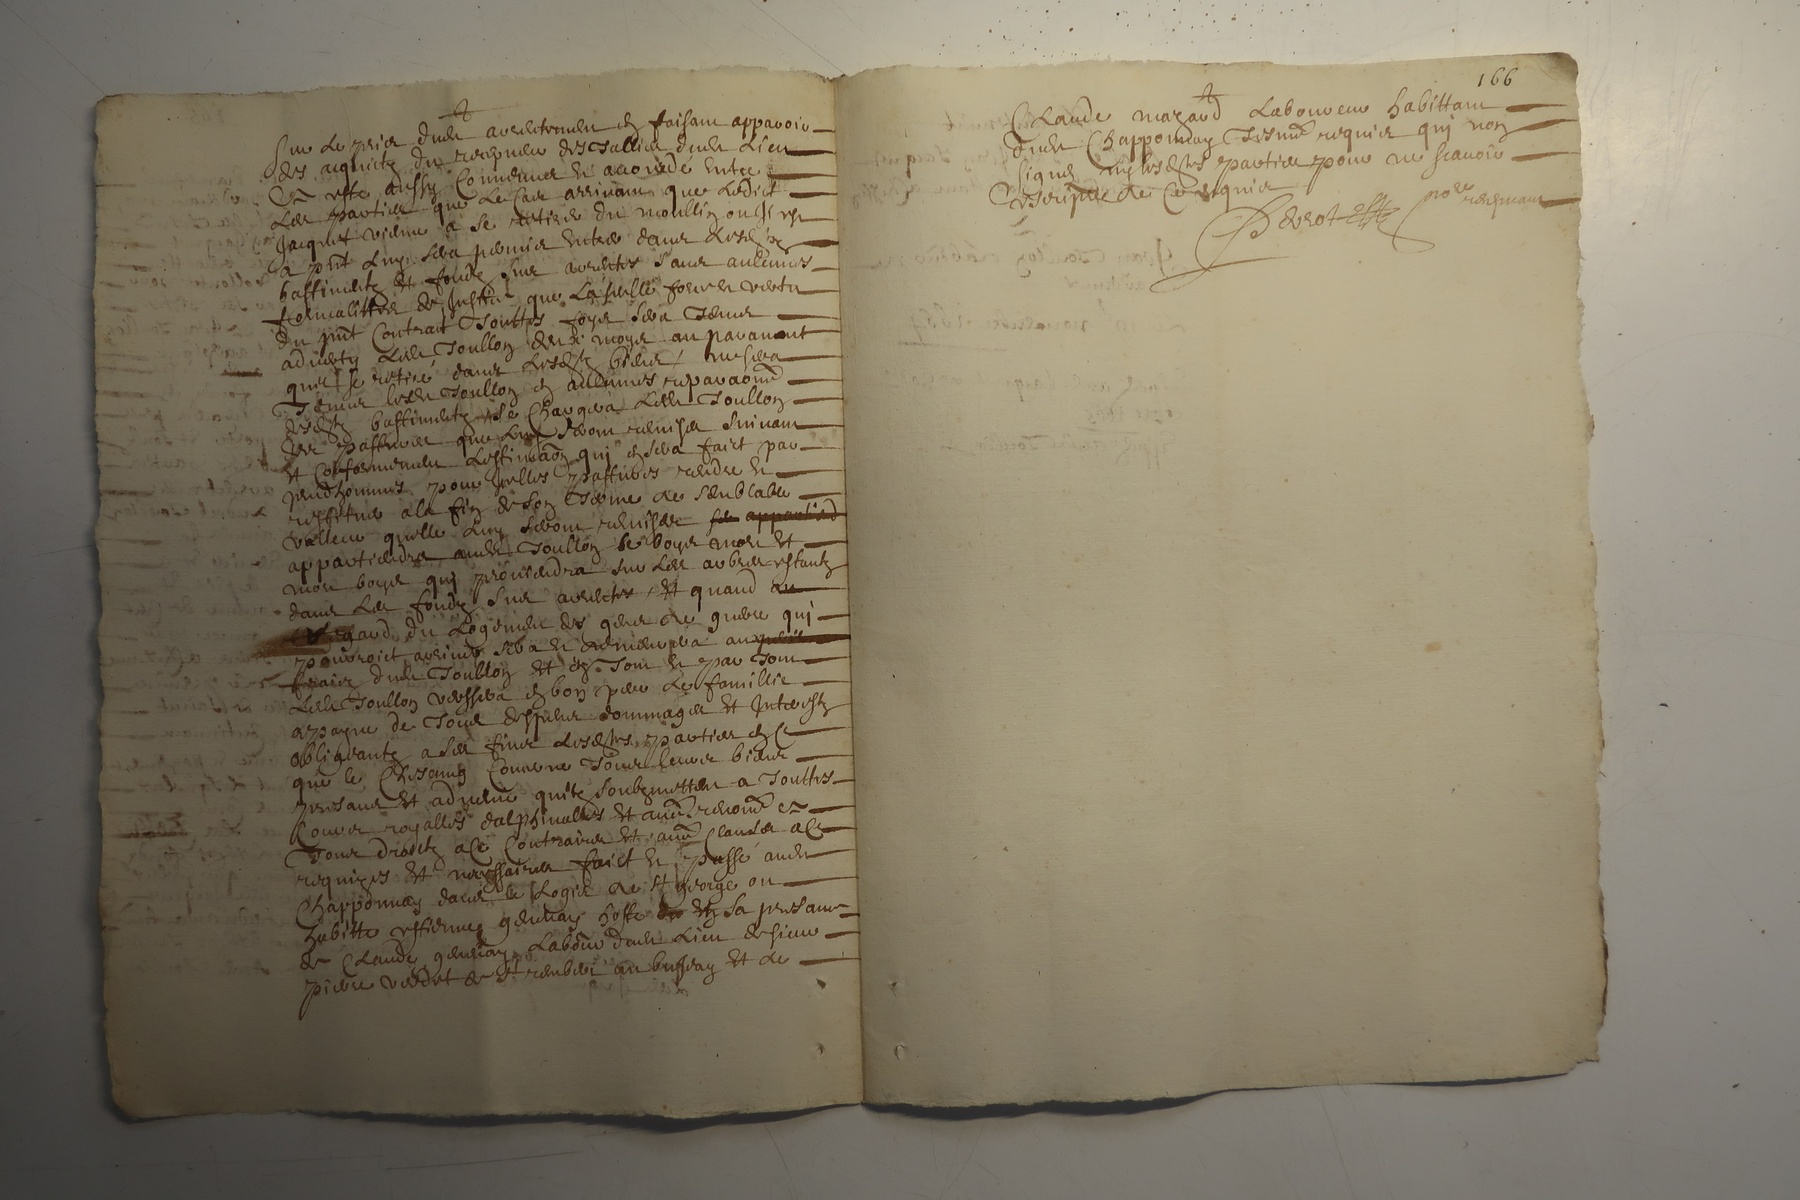 Sur le prix dudt arrentement En faisant apparoir
des acquictz du recepveur des Tallies dudt Lieu
Et este aussy Convenu et accordé Entre
Les parties que le Cas arrivant que Ledict
Jacques vienne a se retirer du moullin ou Il est
a pnt Luy sera permis Entrer dans lesdtz
bastimentz et fondz sus arrentes sans aulcunes
formalittes de Justice que la seulle force et vertu
du pnt Contrait Touttes foys sera Tenu
advertir Ledt Toullon deux moys auparavant
que se retire dans lesdtz biens ne sera
Tenu ledt Toullon En aulcunes reparaons
desdtz bastimentz se Chargera Ledt Toullon
des pastures que Luy seront remises suivant
et Conformement Lestimaon qui En sera faict par
prudhommes pour Icelles pastures rendre et
restituer a la fin de son Terme de semblable
valleur quelle Luy seront remises
appartiendra audt Toullon le boys mort et
mort boys qui proviendra sur Les arbres estantz
dans Les fondz sus arrentes et quand au
Esgard du Logement des gens de guerre qui
pourroict arriver sera et demeurera
fraiz dudt Toullon et En Tout et par Tout
Ledt Toullon versera En bon pere de famillie
a payne de Tous despens dommages et Interestz
obligeantz a ses fins lesdtes parties En Ce
que le Chescung Concerne Tous leurs biens
presans et advenir quilz soubzmettent a Touttes
Cours royalles dalphinalles et aues renons
Tous droictz a Ce Contraires et aues Clauses a Ce
requizes et necessaires faict et passé audt
Chapponnay dans le Logis de St George ou
habitte estienne gervay hoste En sa presance
de Claude gervay Labour dudt Lieu de sieur
pierre verdet de St rembert au bugey et de
Claude mazard Laboureur habittant
dudt Chapponnay Tesmns requis qui nont
signé ny lesdtes parties pour ne scavoir
Escripre de Ce requis
nore recepvant
166